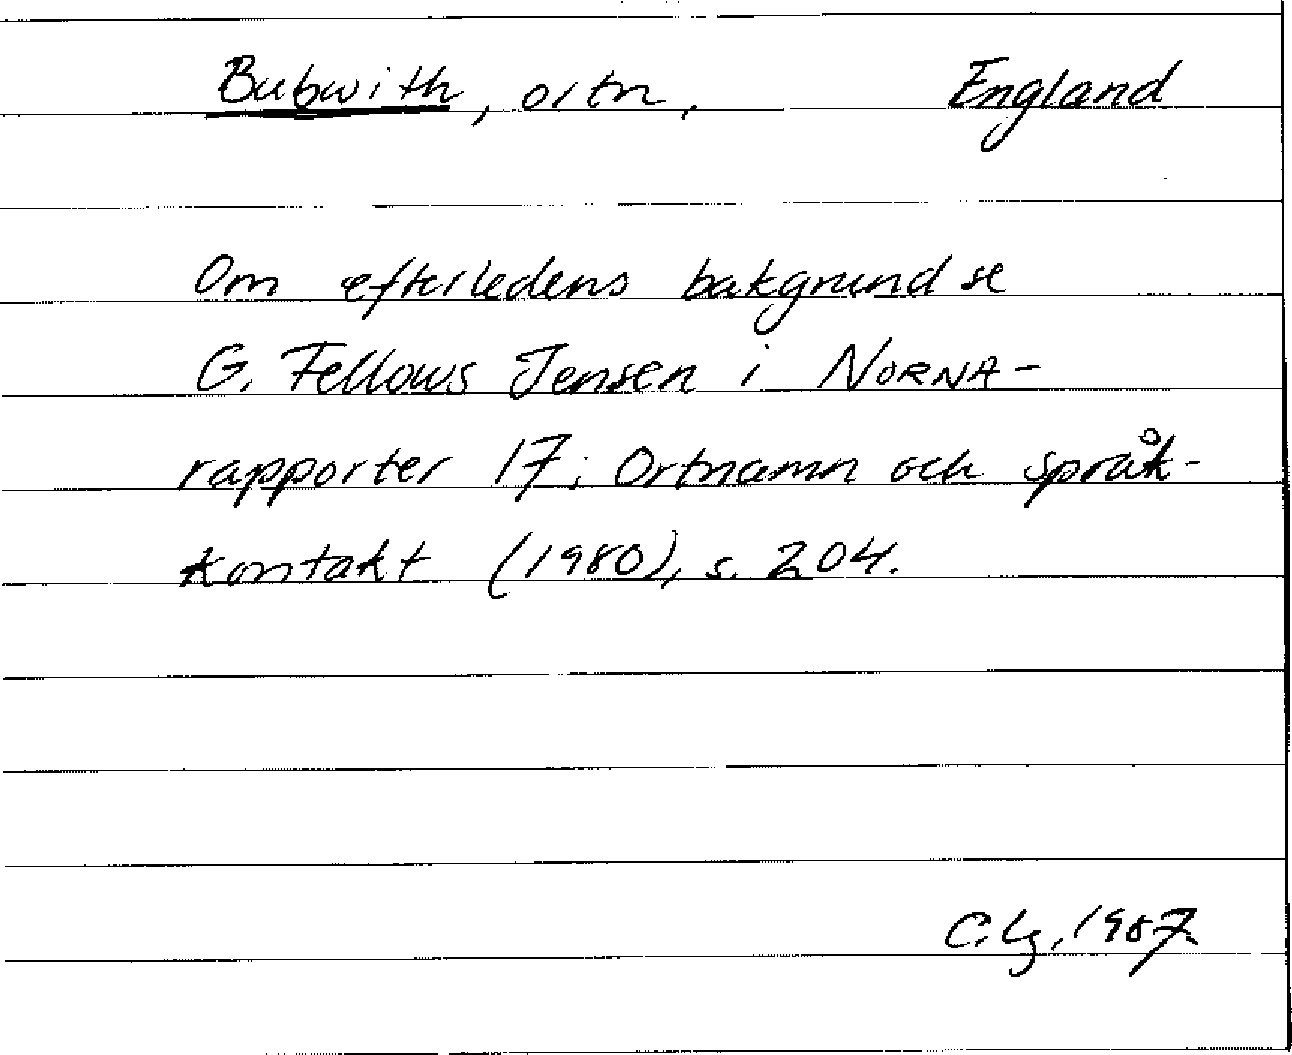 Bubwith, ortn, England
Om efterledens bakgrund se
G. Fellows Jensen i NORNA-
rapporter 17; Ortnamn och språk-
kontakt (1980), s. 204.
C. Lg, 1987